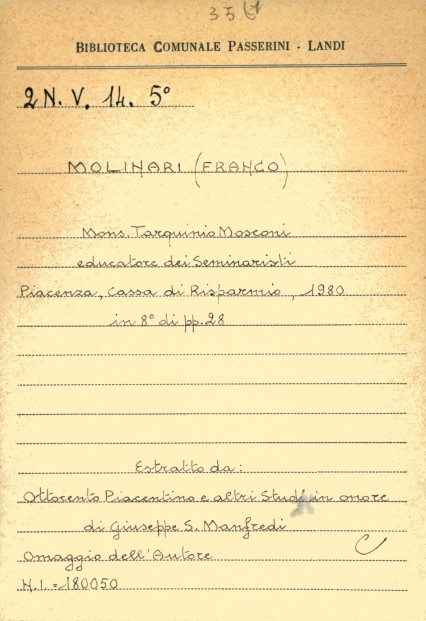 BIBLIOTECA COMUNALE PASSERINI - LANDI
2 N. V. 14. 5°
MOLINARI (FRANCO)
Mons. Tarquinio Mosconi
educatore dei Seminaristi
Piacenza, Cassa di Risparmio, 1980
in 8° di pp. 28
Estratto da:
Ottocento Piacentino e altri Studi in onore
di Giuseppe S. Manfredi
Omaggio dell'Autore
N.I. = 180050